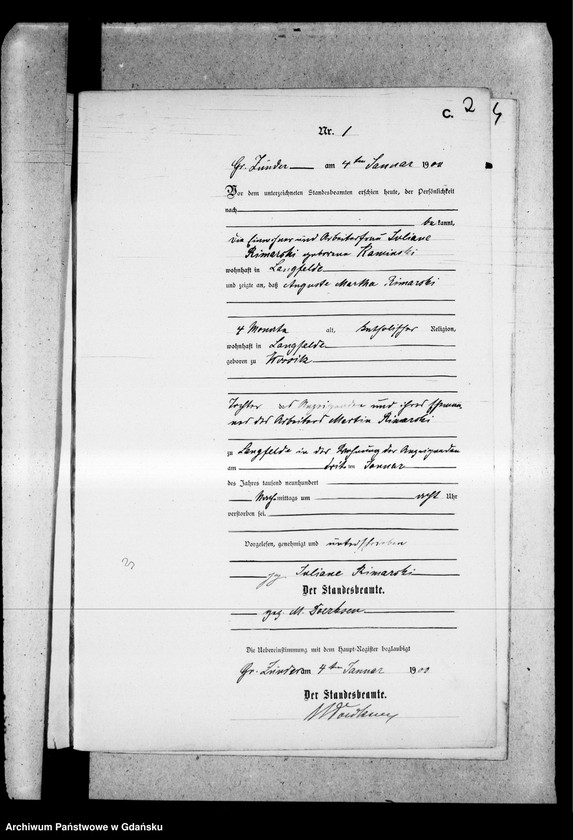 C. 2 4
Nr. 1
Gr. Zünder am 4ten Januar 1900
Vor dem unterzeichneten Standesbeamten erschien heute, der Persönlichkeit
nach
bekannt,
die Einwohner und Arbeiterfrau Juliane
Rimarski geborene Kaminski
wohnhaft in Langfelde
und zeigte an, daß Auguste Martha Rimarski
4 Monate alt, katholischer Religion,
wohnhaft in Langfelde
geboren zu
Tochter der Anzeigenden und ihres Ehemannes
des Arbeiters Martin Rimarski
zu Langfelde in der Wohnung der Anzeigenden
am dritten Januar
des Jahres tausend neunhundert
Nachmittags um acht Uhr
verstorben sei.
Vorgelesen, genehmigt und unterschrieben
gez. Juliane Rimarski
Der Standesbeamte.
gez. M. Doerksen
Die Uebereinstimmung mit dem Haupt-Register beglaubigt
Gr. Zünder am 4ten Januar 1900
Der Standesbeamte.
M Doerksen
Archiwum Państwowe w Gdańsku